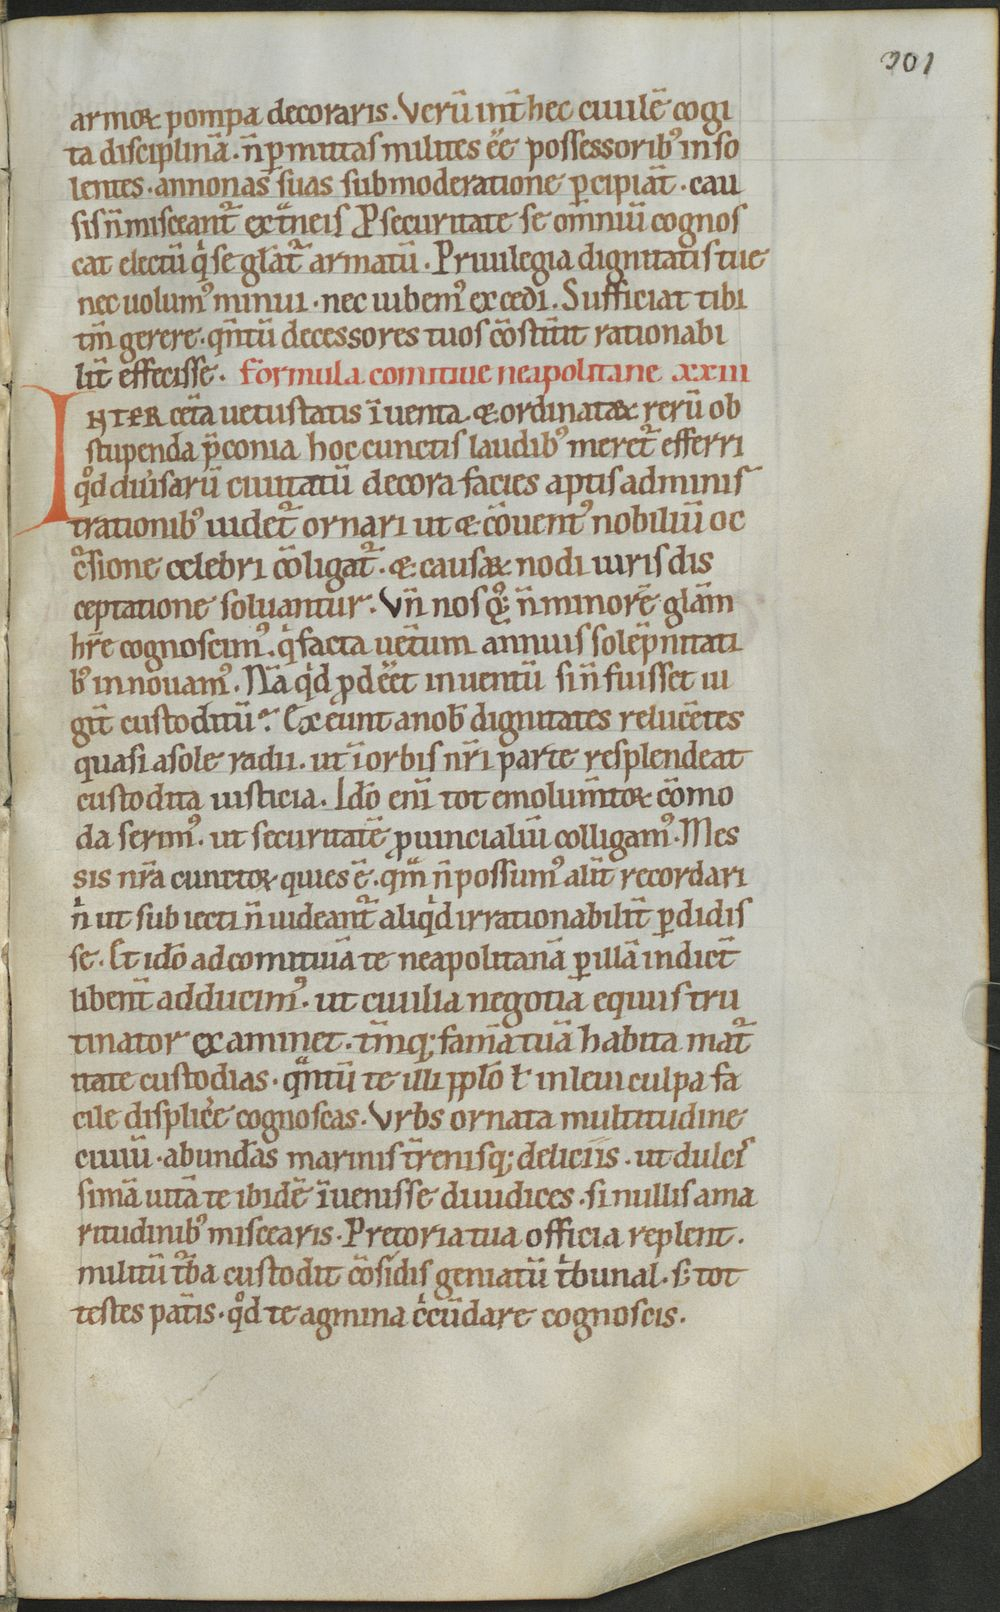 301
armoꝝ pompa decoraris. Verū int̄ hec ciuilē cogi
ta disciplinā. n̄ ꝑmittas milites ēē possessoribꝰ inso
lentes. annonas suas sub moderatione ꝑcipiāt. cau
sis n̄ misceant᷑ ext̄neis. P securitate se omniū cognos
cat electū q̇ se gl̄at᷑ armatū. Priuilegia dignitatis tue
nec uolumꝰ minui. nec iubemꝰ excedi. Sufficiat tibi
tm̄ gerere. qn̄tū decessores tuos cōstit̄it rationabi
lit̄ effecisse. formula comitiue neapolitane xxiii
INTER cet̄a uetustatis īuenta. & ordinataꝝ rerū ob
stupenda p̄conia hoc cunctis laudibꝰ meret᷑ efferri
qͦd diu̓sarū ciuitatū decora facies aptis adminis
trationibꝰ uidet᷑ ornari ut & cōuentꝰ nobiliū oc
cͦsione celebri cōligat᷑. & causaꝝ nodi iuris dis
ceptatione soluantur. Vn̄ nos qͦꝫ n̄ minorē gl̄am
hr̄e cognoscimꝰ. q̇ facta uet̄um annuis solēpnitati
bꝰ innouamꝰ. Nā qͥd ꝓdēēt inuentū si n̄ fuisset iu
git̄ custoditū? Exeunt a nob̄ dignitates relucētes
quasi a sole radii. ut ī orbis nr̄i parte resplendeat
custodita iusticia. Ido̅ eni̅ tot emolum̄toꝝ cōmo
da serimꝰ. ut securitatē ꝓuincialiū colligamꝰ. Mes
sis nr̄a cunctoꝝ quies ē. qm̄ n̄ possumꝰ alit̄ recordari
nͥ ut subiecti n̄ uideant᷑ aliqͥd irrationabilit̄ ꝑdidis
se. Et ido̅ ad comitiuā te neapolitanā ꝑ illā indict̄
libent̄ adducimꝰ. ut ciuilia negotia equus tru
tinator examinet. tm̄qꝫ famā tuā habita mat᷑
itate custodias. qn̄tū te illi pp̄lo ł in leui culpa fa
cile displic̓e cognoscas. Vrbs ornata multitudine
ciuiū. abundās marinis t̄renisqꝫ deliciis. ut dulcis
simā uitā te ibidē īuenisse diiudices. si nullis ama
ritudinibꝰ miscearis. Pretoria tua officia replent.
militū t᷑ba custodit cōsidis gēmatū tͥbunal. sꝫ tot
testes pat̄is. qͦd te agmina cͥcūdare cognoscis.